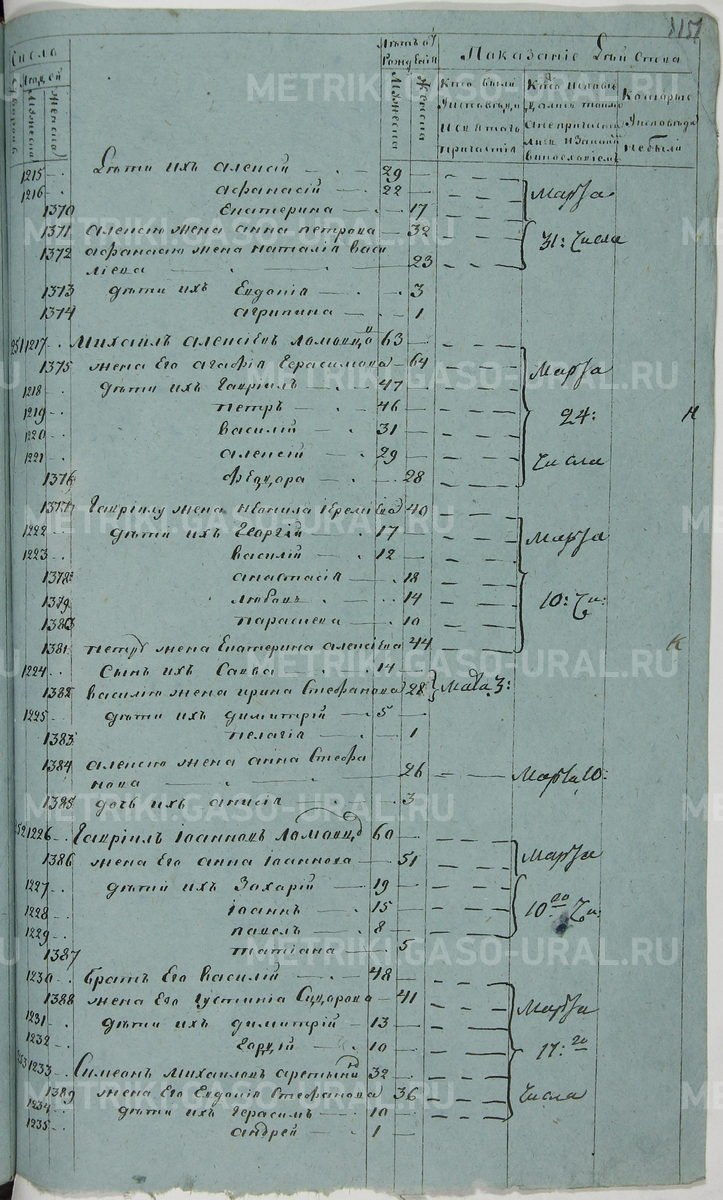 Числа
Людей
Мужеска
Женска
Лѣтъ отъ Рожденія
Мужеска
Женска
Показаніе
Кто были
Исповѣди
и святаго
причастія
Которые
Исповѣди
не были
1215 Дѣти ихъ Алексій 29
1216 Афанасій 22 Марта
1370 Екатерина 17
1371 Алексѣю жена Анна Петрова 32 31: Числа
1372 Афанасію жена Наталія Васи
ліева 23
1373 дѣти ихъ Евдокія 3
1374 Агрипина 1
251 1217 Михаилъ Алексіевъ 63
1375 жена Его Агафія Герасимова 64 Марта
1218 дѣти ихъ Гавріилъ 47
1219 Петръ 46 24:
1220 Василій 31
1221 Алексій 29 Числа
1376 Феодора 28
1377 Гавріилу жена 40
1222 дѣти ихъ Георгій 17 Марта
1223 Василій 12
1378 Анастасія 18
1379 Любовь 14 10: Чи:
1380 Параскева 10
1381 Петру жена Екатерина Алексіева 44
1224 Сынъ ихъ Савва 14
1382 Василію жена Ирина Стефанова 28 3:
1225 дѣти ихъ Димитрій 5
1383 Пелагія 1
1384 Алексію жена Анна Стефа
нова 26 Марта 10:
1385 дочь ихъ Анисія 3
252 1226 Гавріилъ Іоанновъ 60
1386 жена Его Анна Іоаннова 51 Марта
1227 дѣтій ихъ Захарій 19
1228 Іоаннъ 15 10го Чи:
1229 Павелъ 8
1387 Татіана 5
1230 братъ Его Василій 48
1388 жена Его Іустинія Сидорова 41 Марта
1231 дѣти ихъ Димитрій 13
1232 10 17:го
253 1233 Симеонъ Михаиловъ 32
1389 жена Его Евдокія Стефанова 36 Числа
1234 дѣти ихъ Герасимъ 10
1235 Андрей 1
METRIKI.GASO-URAL.RU